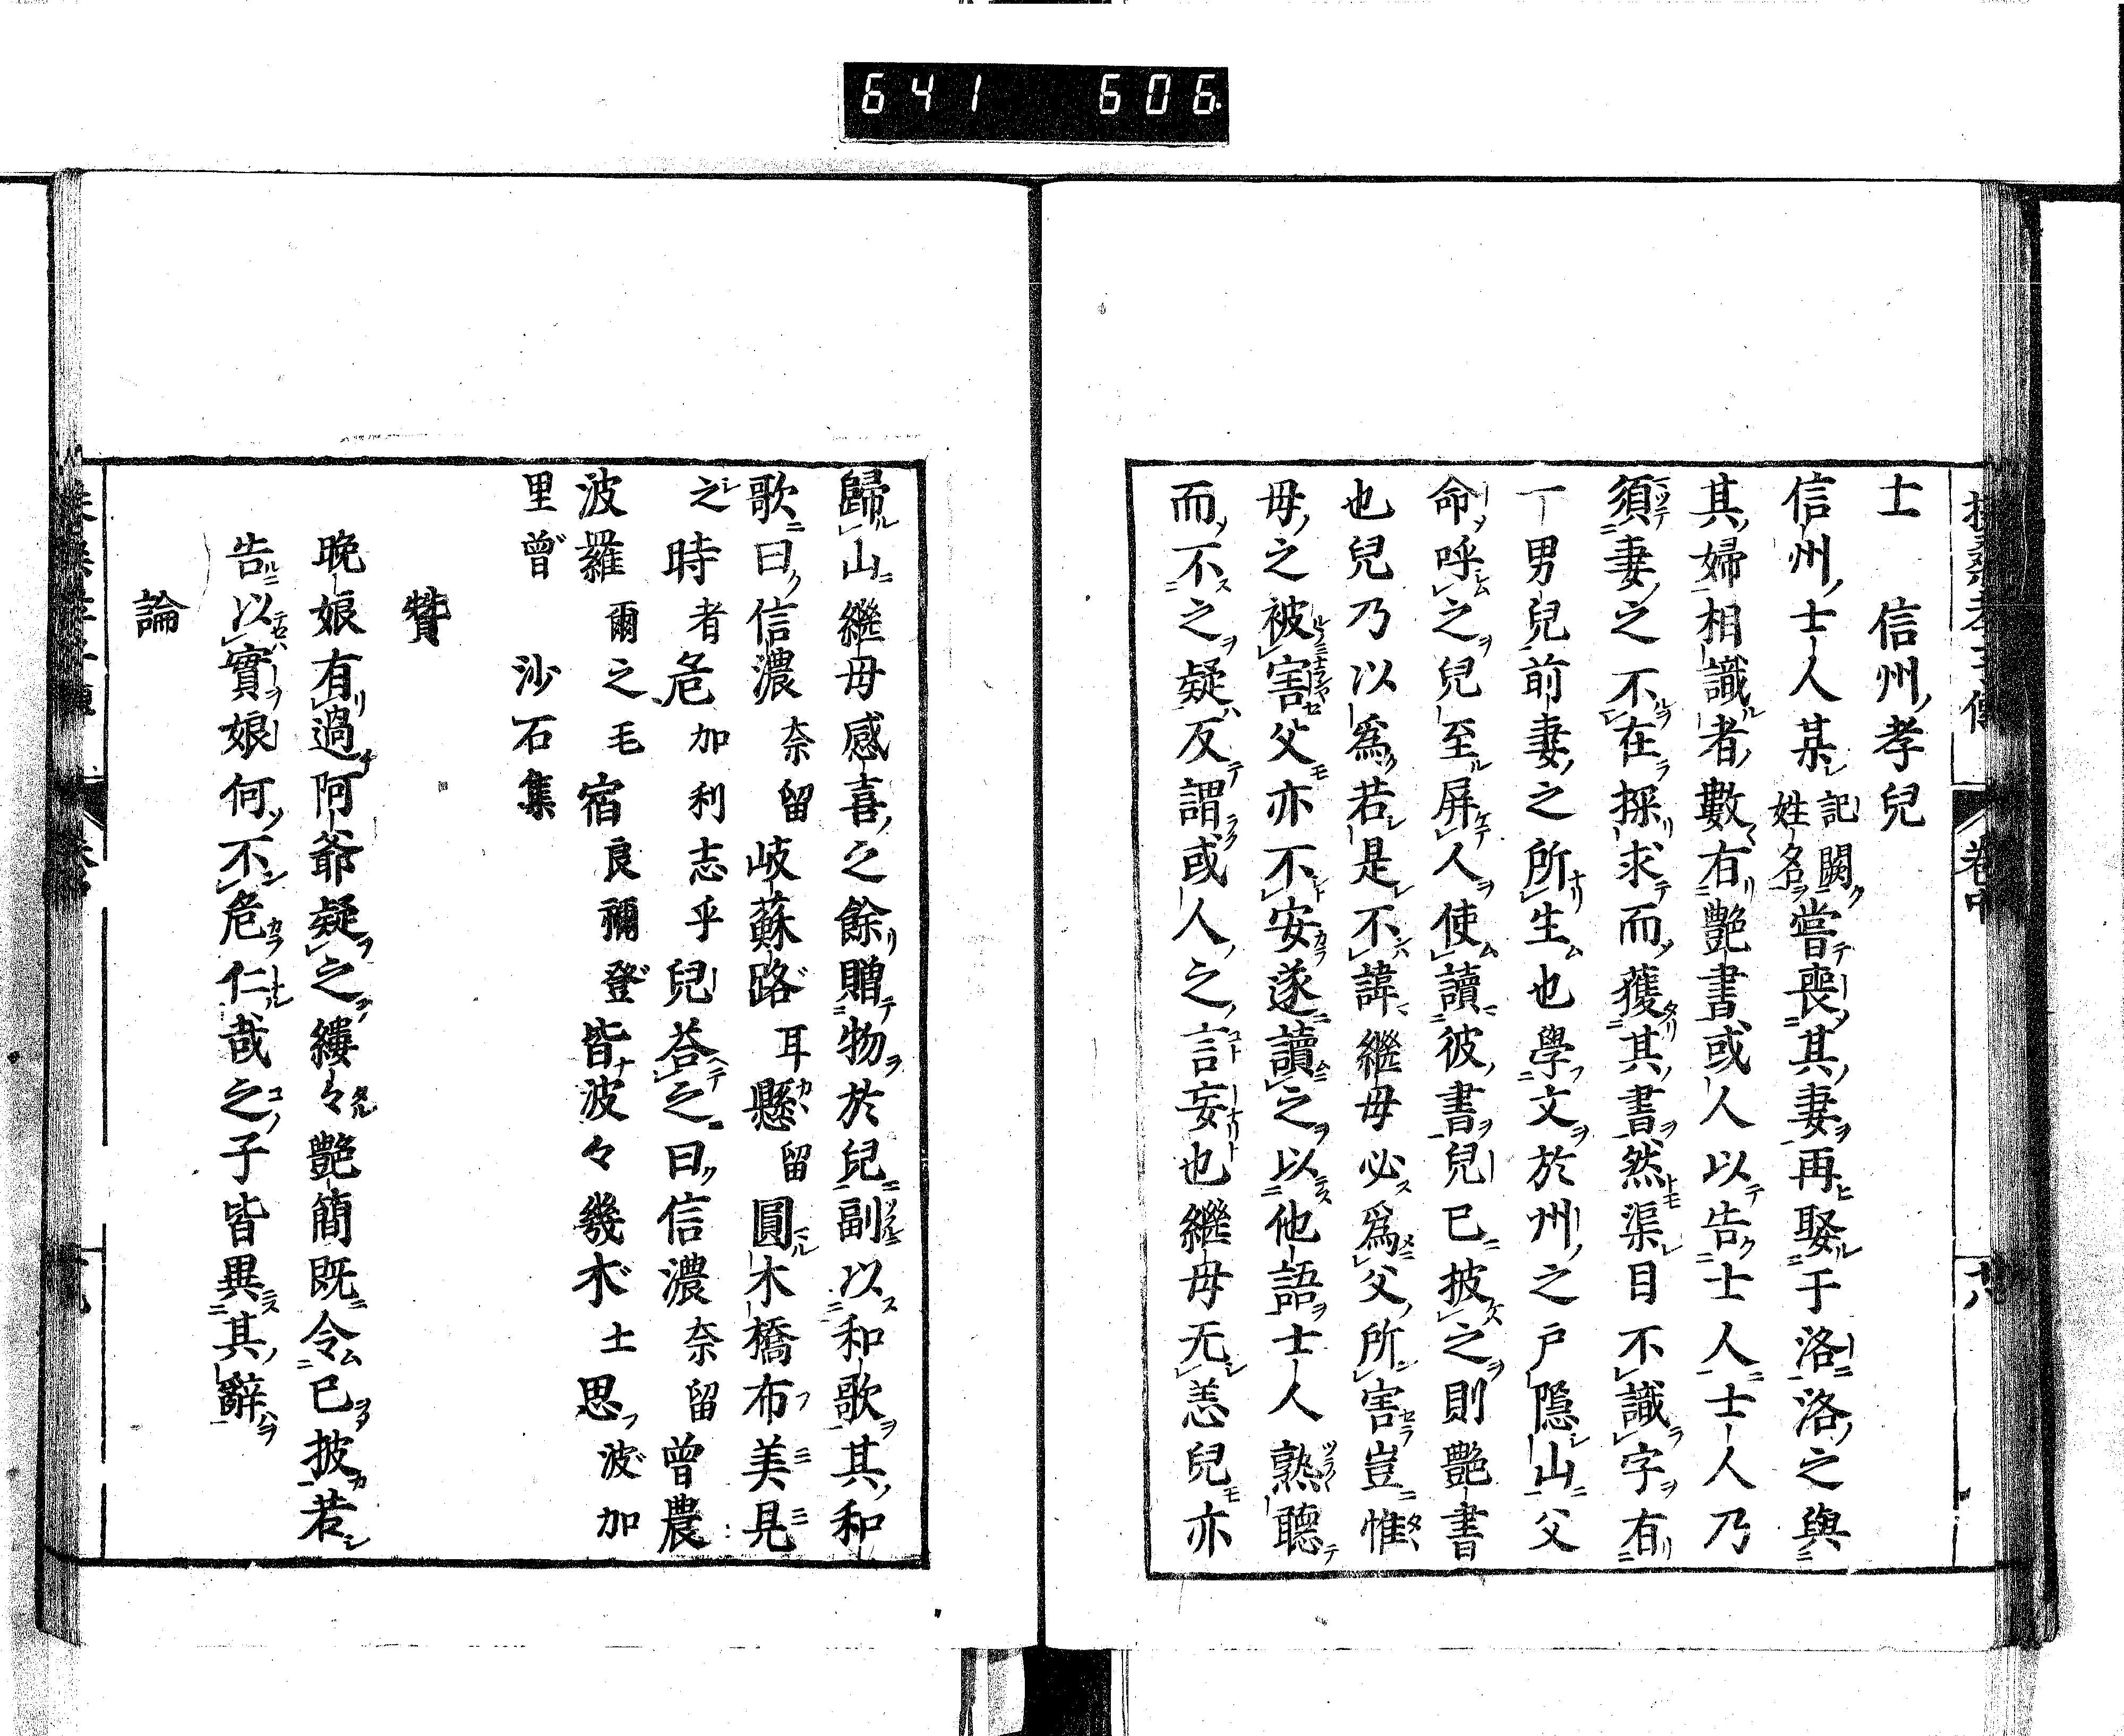 641 606
士 信州孝兒
信州士人某記闕姓名嘗喪其妻再娶于洛洛之與
其婦相識者數有艶書或人以告士人士人乃
須妻之不在探求而獲其書然渠目不識字有
一男兒前妻之所生也學文於州之戸隱山父
命呼之兒至屏人使讀彼書兒已披之則艶書
也兒乃以爲若是不諱繼母必爲父所害豈惟
母之被害父亦不安遂讀之以他語士人熟聽
而不之疑反謂或人之言妄也繼母无恙兒亦
歸山繼母感喜之餘贈物於兒副以和歌其和
歌曰信濃奈留岐蘇路耳懸留圓木橋布美見
之時者危加利志乎兒荅之曰信濃奈留曾農
波羅爾之毛宿良禰登皆波々幾木土思波加
里曾 沙石集
贊
晩娘有過阿爺疑之縷々艶簡既令已披若
告以實娘何不危仁哉之子皆異其辭
論